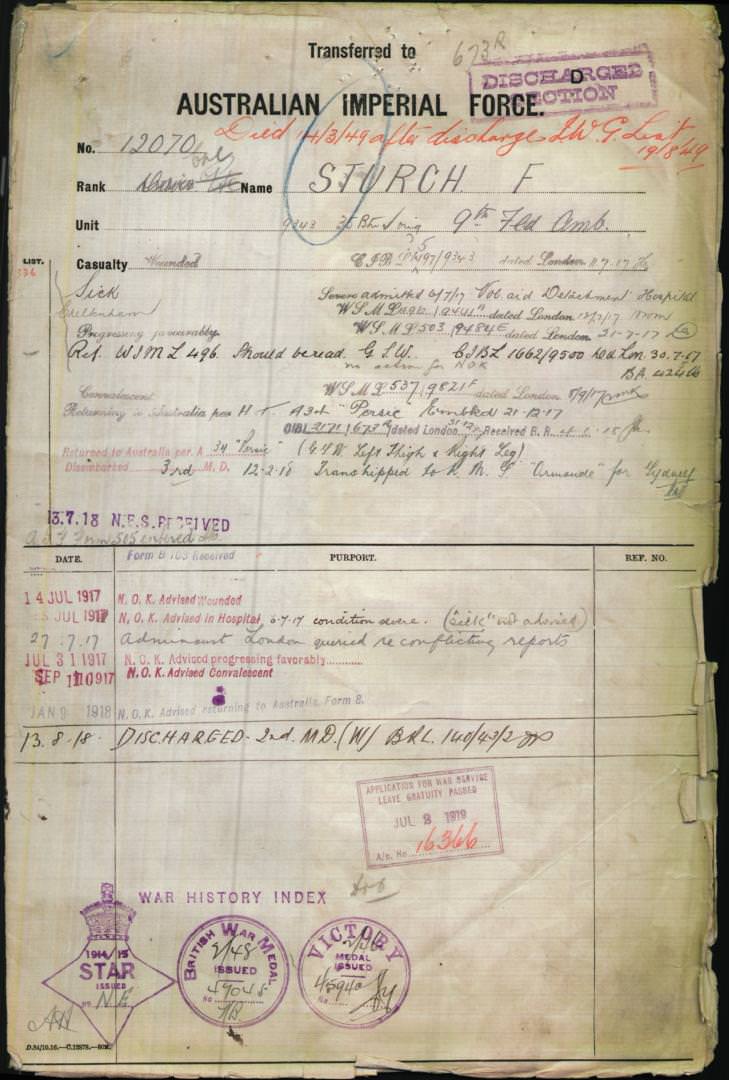 Transferred to
673R
DISCHARGED
SECTION
D
AUSTRALIAN IMPERIAL FORCE.
Died 14/3/49 after discharge I.W.G. List
19/8/49
No. 12070
Rank Name STURCH F
Unit 9343 9th Fld Amb.
LIST.
336
Casualty Wounded 5197/9343 dated London 11.7.17
Sick Severe admitted 6/7/17 Vol. aid Detachment Hospital
Cheltenham dated London 12/7/17
Progressing favourably. W S M L 503 9484E dated London 21-7-17
Ref. W S M L 496. Should be read. G.S.W. C I B L 1662/9500 Lon. 30.7.17
no action for NOK
BA 42466
Convalescent W S M L 537 9821F dated London 8/9/17
Returning to Australia per H T A 34 "Persic" Embkd 21-12-17
CIBL 2171/673 dated London 31 12 Received B. R.
Returned to Australia per A 34 "Persic" (G.S.W. Left Thigh & Right Leg)
Disembarked 3rd M.D. 12-2-18 Transhipped to R. M. S "Ormonde" for Sydney
13.7.18 N.F.S. RECEIVED
A I F Form 505 entered
DATE. PURPORT. REF. NO.
Form B 103 Received
14 JUL 1917 N. O. K. Advised Wounded
JUL 1917 N. O. K. Advised in Hospital 6-7-17 condition severe. ("sick" not advised)
27.7.17 Admincust London queried re conflicting reports
JUL 31 1917 N. O. K. Advised progressing favorably
SEP 1917 N. O. K. Advised Convalescent
JAN 9 1918 N. O. K. Advised returning to Australia, Form 8.
13.8.18. DISCHARGED 2nd. M.D. (W) B.R.L. 140/43/2
APPLICATION FOR WAR SERVICE
LEAVE GRATUITY PASSED
JUL 1919
A/c. No 16366
WAR HISTORY INDEX
1914/15
STAR
ISSUED
NO. N.E.
BRITISH WAR MEDAL
2/48
ISSUED
No 47048
VICTORY
MEDAL
ISSUED
No 45940
D.84/10.16.—C.12878.—50M.